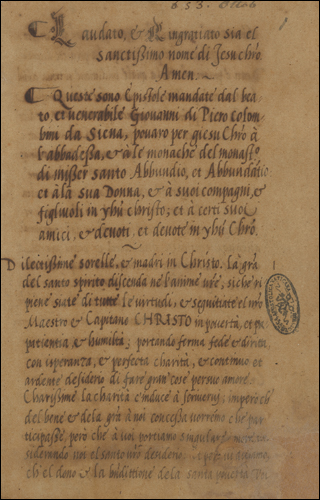 Laudato, & Ringratiato sia el
sanctissimo nome di Jesu chrō
Amen.
Queste sono Epistole mandate dal bea-
to, et venerabile Giovanni di Piero Colom-
bini da Siena, povaro per giesu Chrō à
l'abbadessa, & à le monache del monastō
di misser santo Abbundio, et Abbundātio
et à la sua Donna, & à suoi compagni, &
figliuoli in yhū christo; et à certi suoi
amici, & devoti, et devote in yhū Chrō.
Dilectissime sorelle, & madri in Christo. la grā
del santo spirito discenda ne l'anime vrē, siche ri
piene siate di tutte le virtudi, & seguitate el nrō
Maestro & Capitano CHRISTO in povertà, et
patientia & humiltà; portando ferma fede & diritta
con isperanza, & perfecta charità, & continuo, et
ardente desiderio di fare gran' cose per suo amore.
Charissime la charità c'induce à scrivervi, imperò che
del bene & dela grā à noi concessa vorremo che par-
ticipasse, però che à voi portiamo singulare
el santo vrō desiderio
el dono & la